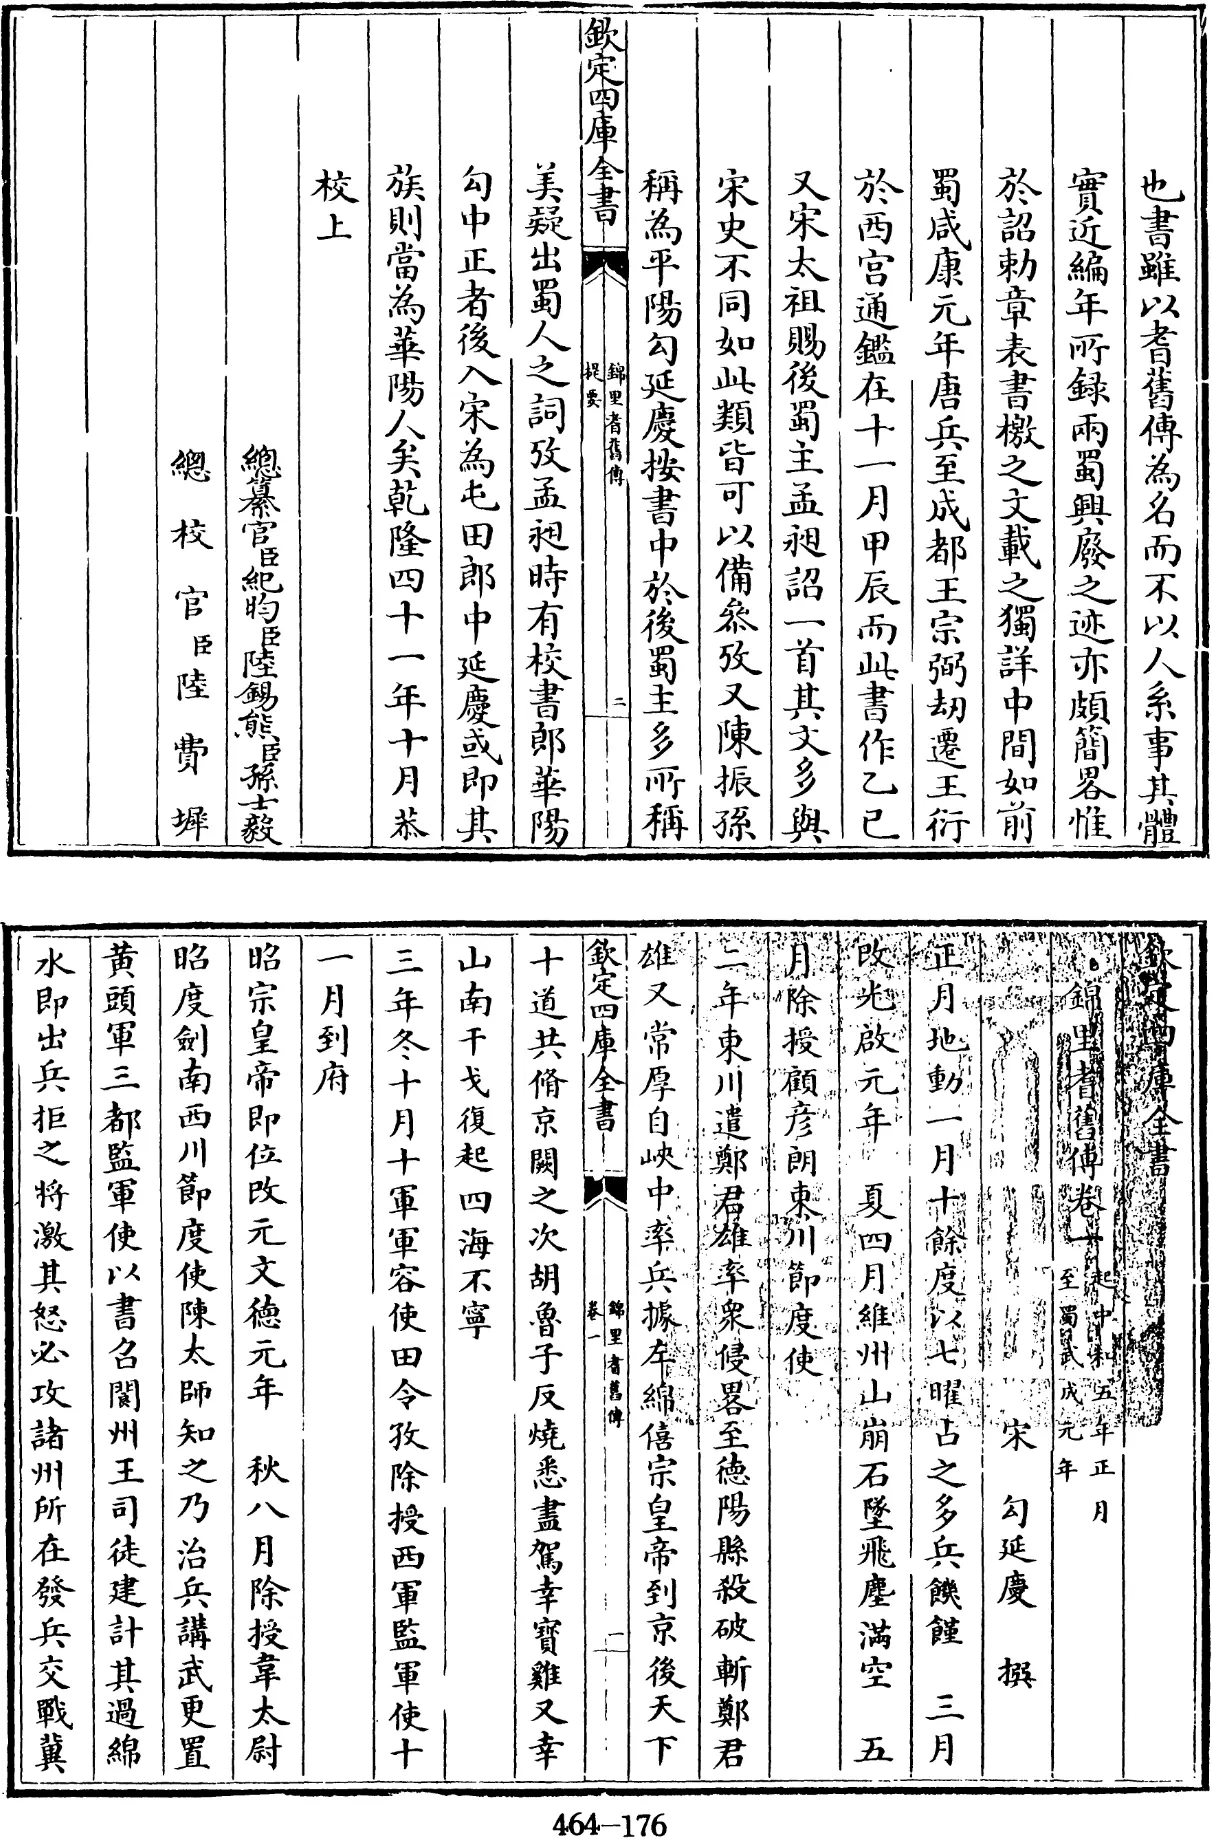 也書雖以耆舊傳為名而不以人系事其體
實近編年所録兩蜀興廢之迹亦頗簡畧惟
於詔勅章表書檄之文載之獨詳中間如前
蜀咸康元年唐兵至成都王宗弼刼遷王衍
於西宫通鑑在十一月甲辰而此書作乙巳
又宋太祖賜後蜀主孟昶詔一首其文多與
宋史不同如此類皆可以備叅攷又陳振孫
稱為平陽勾延慶按書中於後蜀主多所稱
欽定四庫全書
錦里耆舊傳
提要
二
美疑出蜀人之詞攷孟昶時有校書郎華陽
勾中正者後入宋為屯田郎中延慶或即其
族則當為華陽人矣乾隆四十一年十月恭
校上
總纂官臣紀昀臣陸錫熊臣孫士毅
總校官臣陸費墀
欽定四庫全書
錦里耆舊傳卷一
起中和五年正月
至蜀武成元年
宋 勾延慶 撰
正月地動一月十餘度以七曜占之多兵饑饉 三月
改光啟元年 夏四月維州山崩石墜飛塵滿空 五
月除授顧彦朗東川節度使
二年東川遣鄭君雄率衆侵畧至德陽縣殺破斬鄭君
雄又常厚自峽中率兵據左綿僖宗皇帝到京後天下
欽定四庫全書
錦里耆舊傳
卷一
一
十道共脩京闕之次胡魯子反燒悉盡駕幸寳雞又幸
山南干戈復起四海不寧
三年冬十月十軍軍容使田令孜除授西軍監軍使十
一月到府
昭宗皇帝即位改元文德元年 秋八月除授韋太尉
昭度劍南西川節度使陳太師知之乃治兵講武更置
黄頭軍三都監軍使以書召閬州王司徒建計其過綿
水即出兵拒之將激其怒必攻諸州所在發兵交戰冀
464-176